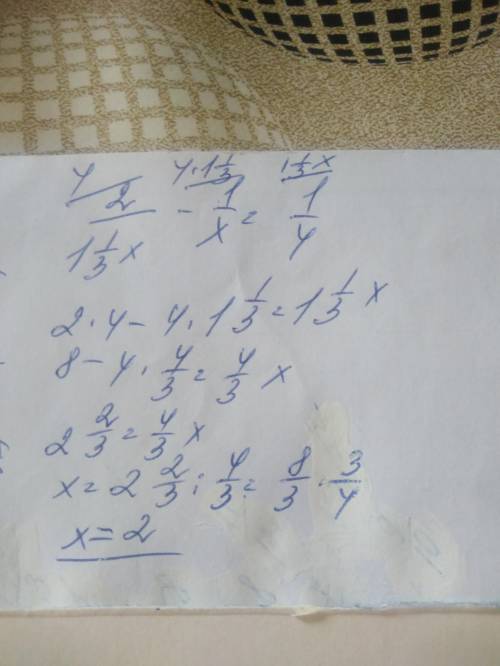 4 4·1 1/3 1 1/3 x
2/(1 1/3 x) - 1/x = 1/4
2·4 - 4·1 1/3 = 1 1/3 x
8 - 4·4/3 = 4/3 x
2 2/3 = 4/3 x
x = 2 2/3 : 4/3 = 8/3 · 3/4
x = 2